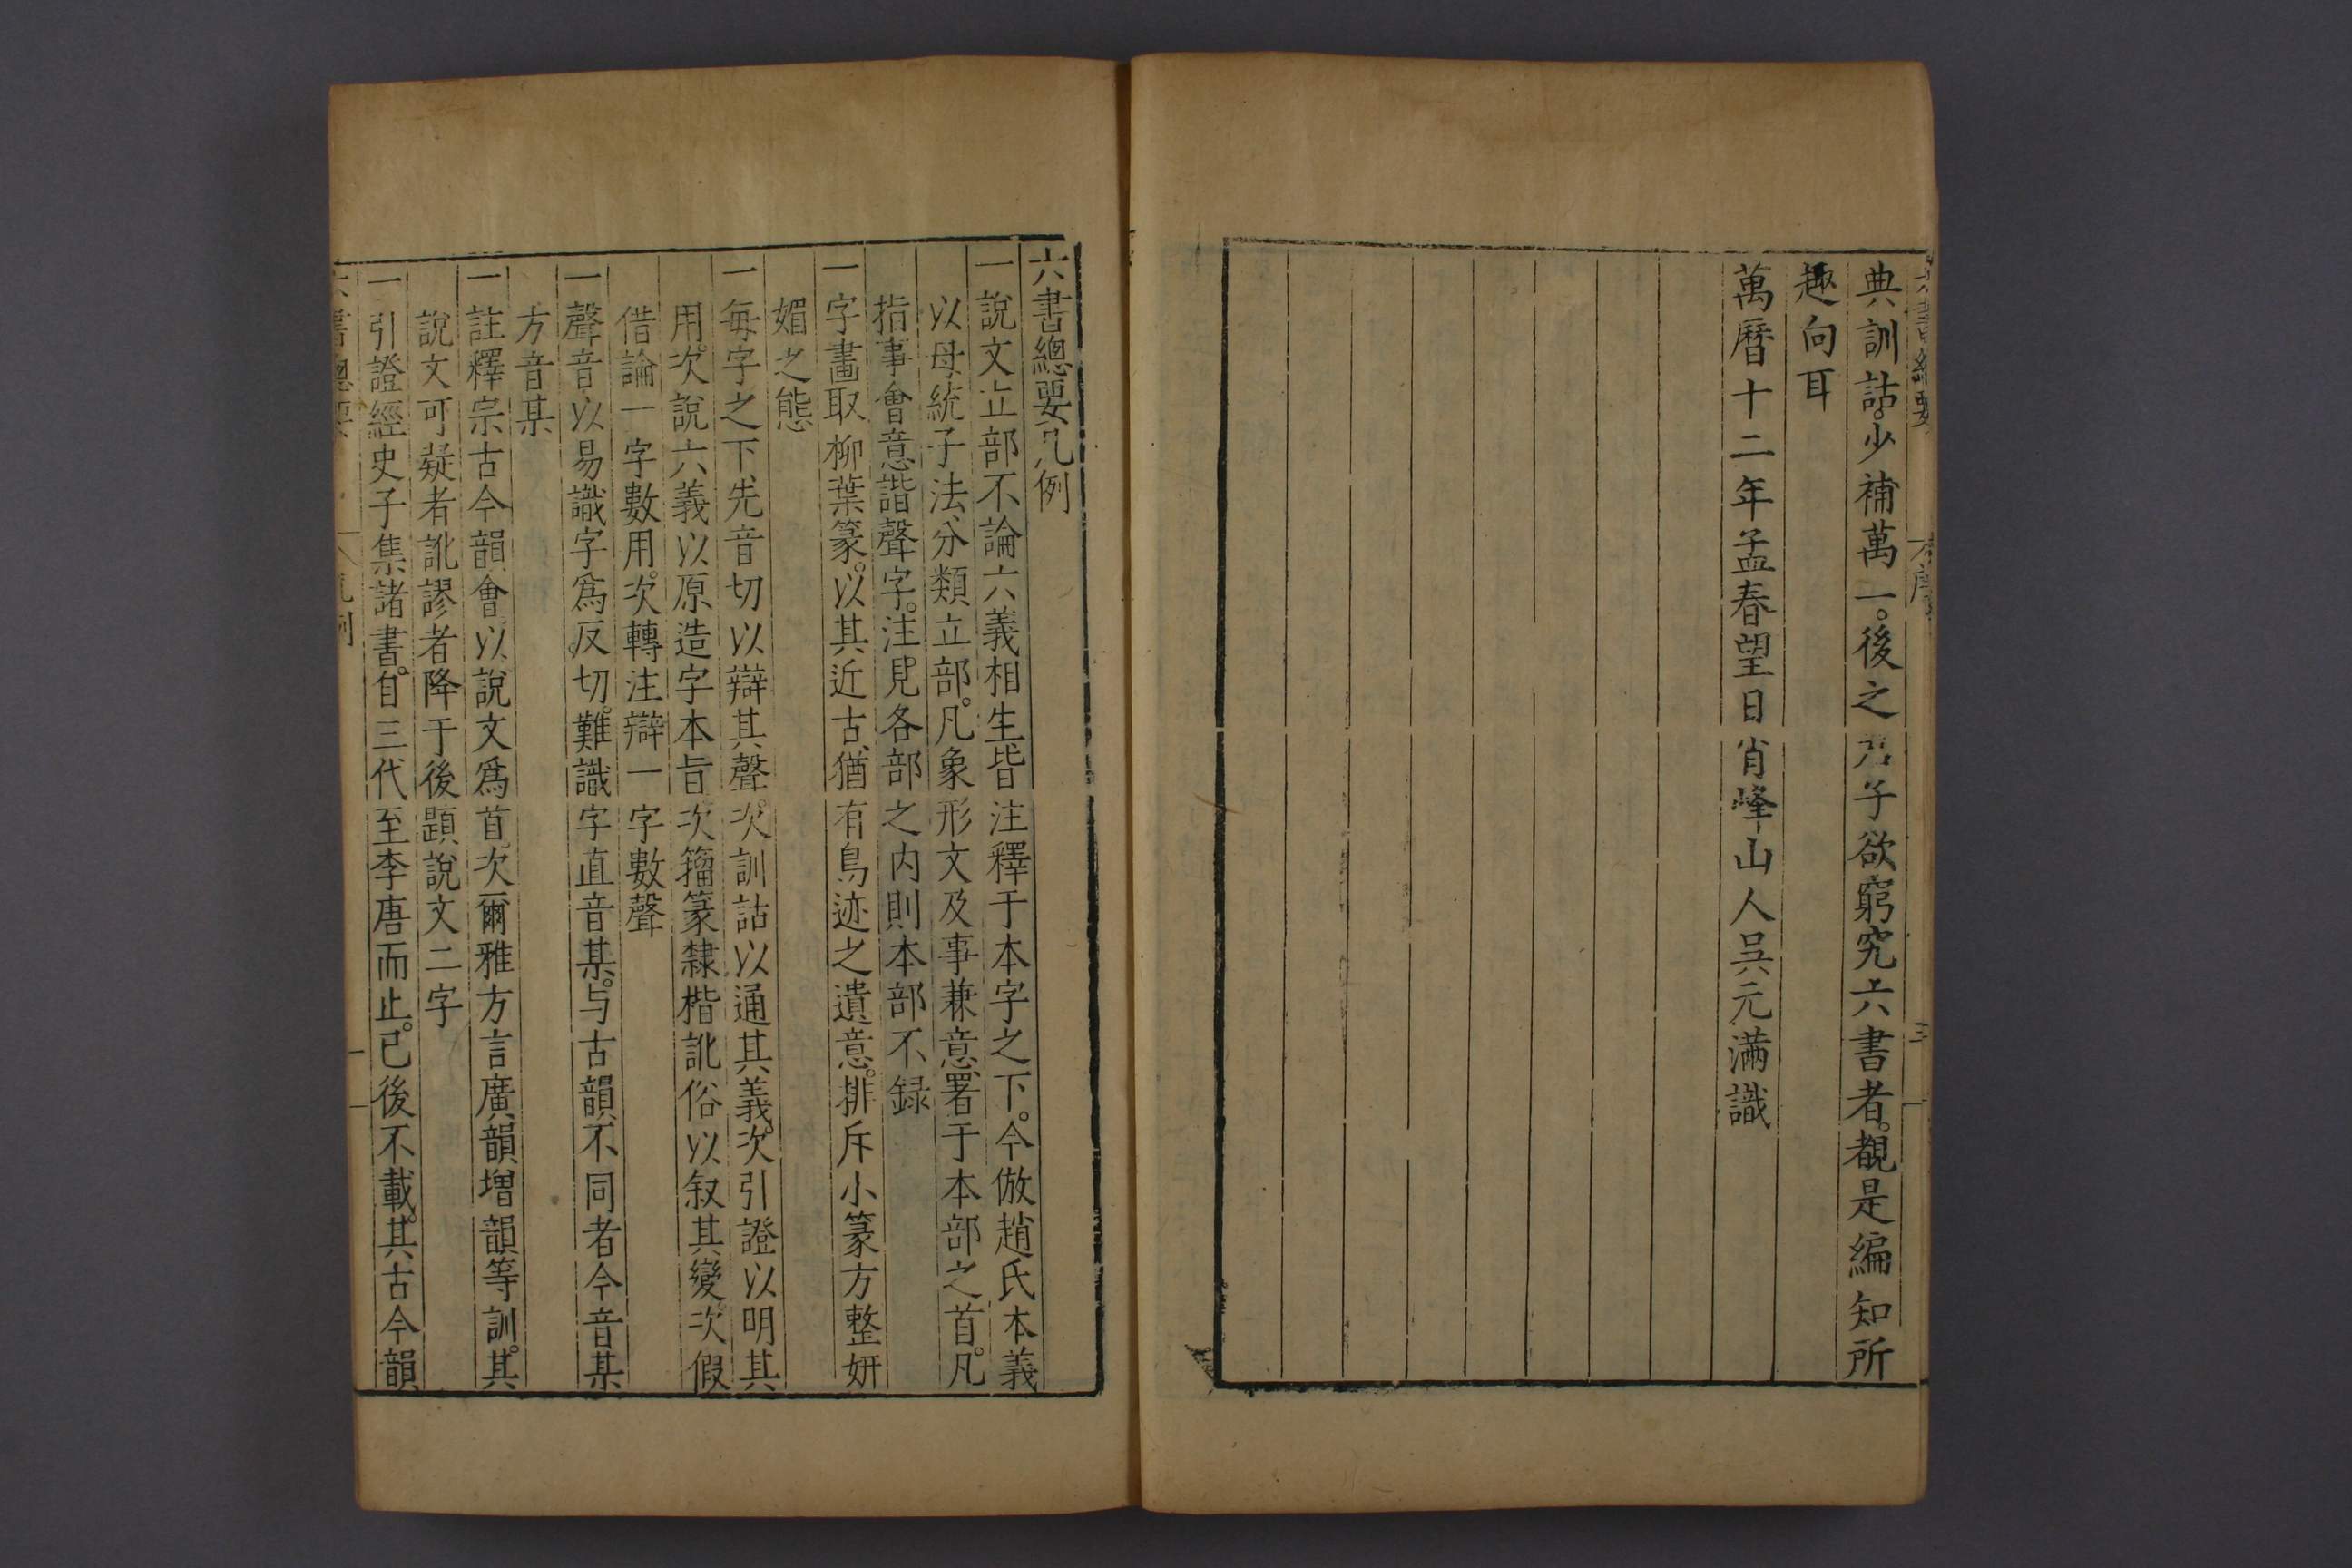 典訓詁。少補萬一。後之君子欲窮究六書者。覩是編知所
趣向耳
萬曆十二年孟春望日肖峰山人吳元滿識
六書總要凡例
一說文立部不論六義相生皆注釋于本字之下。今倣趙氏本義
以母統子法、分類立部。凡象形文及事兼意署于本部之首。凡
指事會意諧聲字。注見各部之内則本部不録
一字畫取柳葉篆。以其近古、猶有鳥迹之遺意。排斥小篆方整妍
媚之態
一每字之下、先音切以辯其聲。次訓詁以通其義。次引證以明其
用。次說六義以原造字本旨次籀篆隸楷訛俗以叙其變。次假
借論一字數用。次轉注辯一字數聲
一聲音以易識字爲反切。難識字直音某。与古韻不同者今音某
方音某
一註釋宗古今韻會以說文爲首。次爾雅方言廣韻增韻等訓。其
說文可疑者訛謬者降于後題說文二字
一引證經史子集諸書。自三代至李唐而止。已後不載。其古今韻